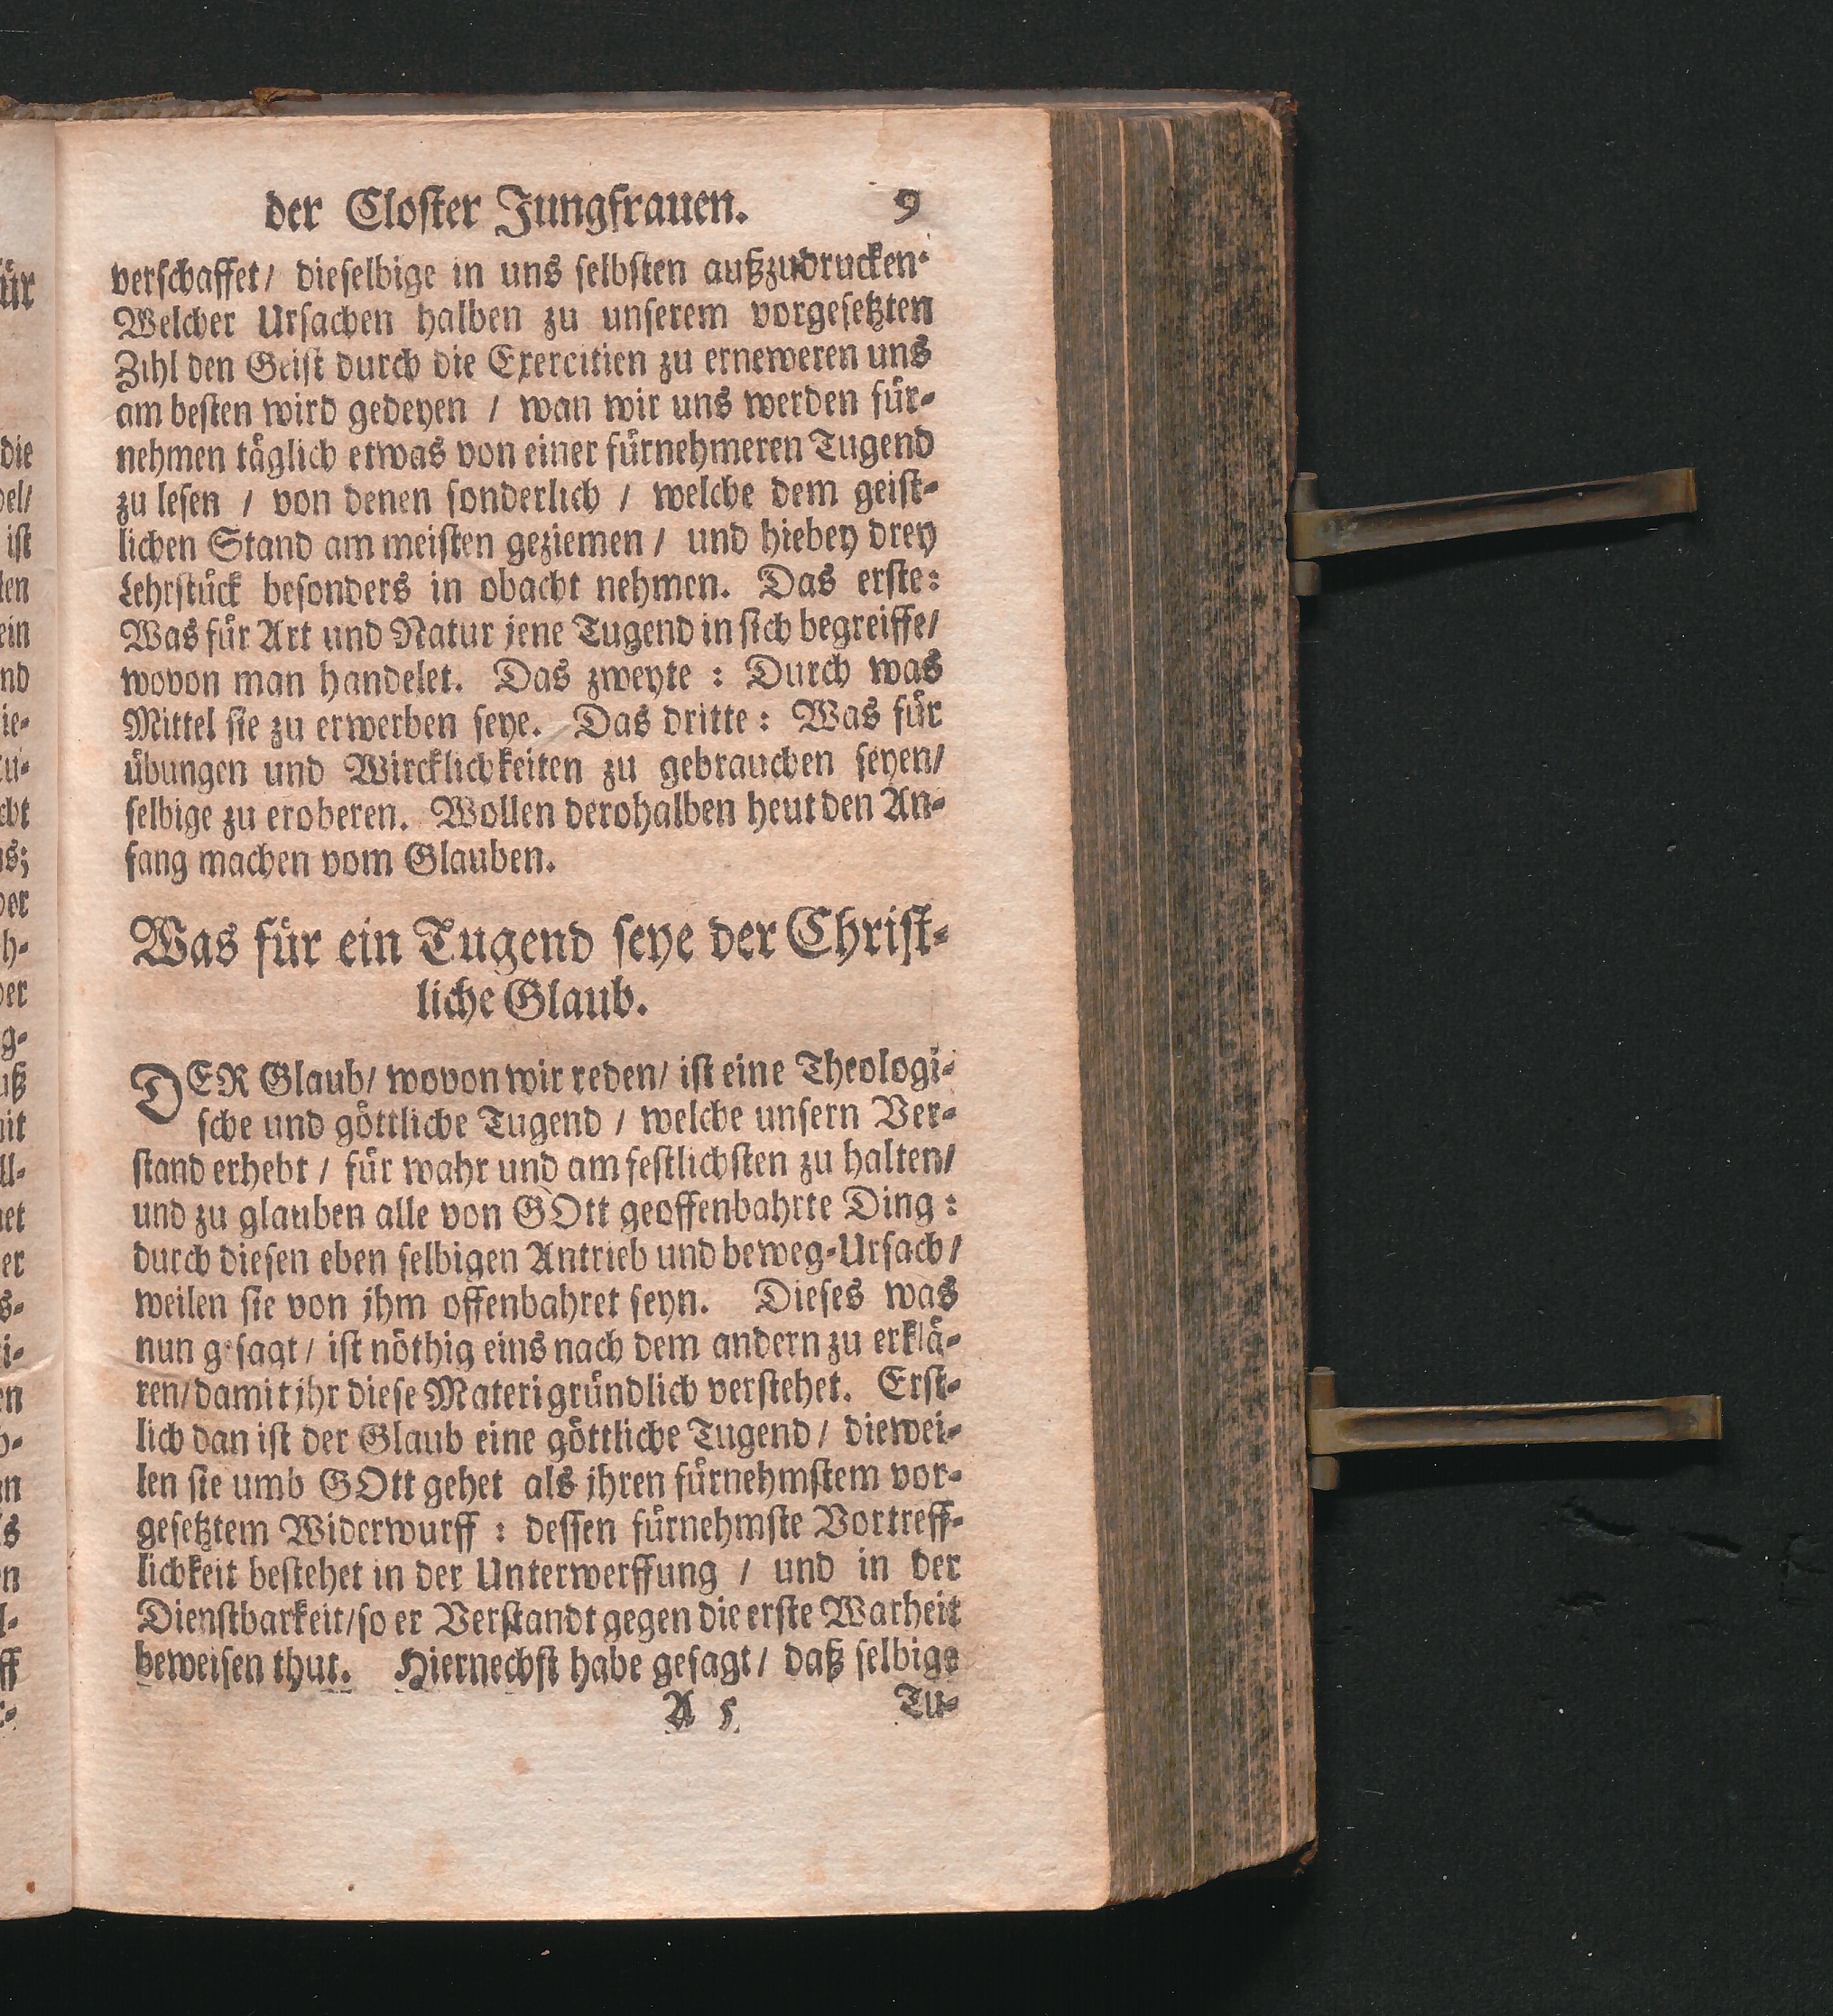 der Closter Jungfrauen. 9
verschaffet/ dieselbige in uns selbsten außzudrucken.
Welcher Ursachen halben zu unserem vorgesetzten
Zihl den Geist durch die Exercitien zu erneweren uns
am besten wird gedeyen / wan wir uns werden für-
nehmen täglich etwas von einer fürnehmeren Tugend
zu lesen / von denen sonderlich / welche dem geist-
lichen Stand am meisten geziemen / und hiebey drey
Lehrstück besonders in obacht nehmen. Das erste:
Was für Art und Natur jene Tugend in sich begreiffe/
wovon man handelet. Das zweyte : Durch was
Mittel sie zu erwerben seye. Das dritte : Was für
übungen und Wircklichkeiten zu gebrauchen seyen/
selbige zu eroberen. Wollen derohalben heut den An-
fang machen vom Glauben.
Was für ein Tugend seye der Christ-
liche Glaub.
DER Glaub/ wovon wir reden/ ist eine Theologi-
sche und göttliche Tugend / welche unsern Ver-
stand erhebt / für wahr und am festlichsten zu halten/
und zu glauben alle von GOtt geoffenbahrte Ding :
durch diesen eben selbigen Antrieb und beweg-Ursach/
weilen sie von jhm offenbahret seyn. Dieses was
nun gesagt/ ist nöthig eins nach dem andern zu erklä-
ren/ damit jhr diese Materi gründlich verstehet. Erst-
lich dan ist der Glaub eine göttliche Tugend / diewei-
len sie umb GOtt gehet als jhren fürnehmstem vor-
gesetztem Widerwurff : dessen fürnehmste Vortreff-
lichkeit bestehet in der Unterwerffung / und in der
Dienstbarkeit/ so er Verstandt gegen die erste Warheit
beweisen thut. Hiernechst habe gesagt / daß selbige
A 5 Tu-